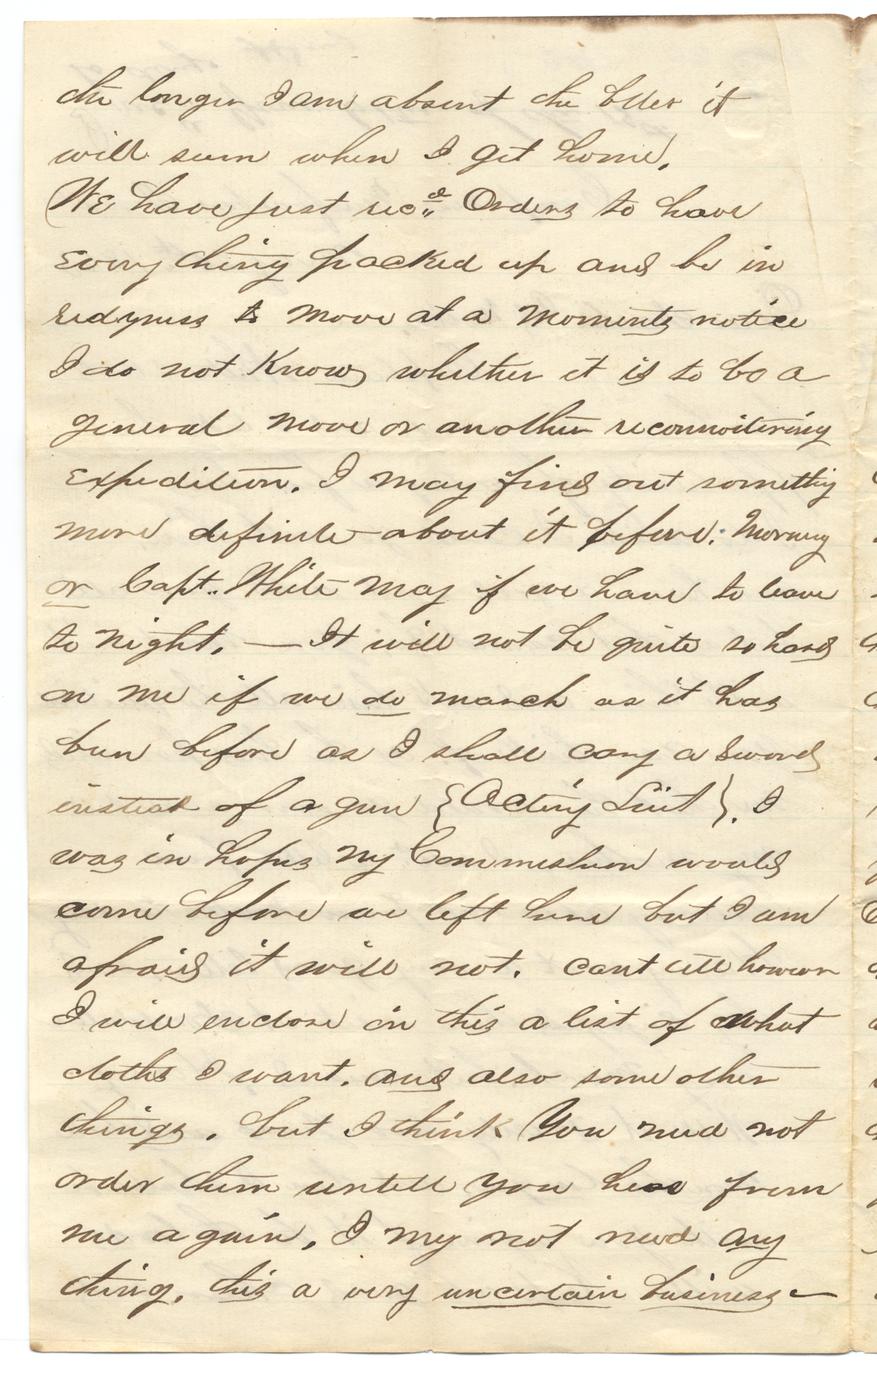 the longer I am absent the better it
will seem when I get home.
We have just recd Orders to have
every thing packed up and be in
redyness to move at a moments notice
I do not Know whether it is to be a
general move or another reconnoitering
expedition. I may find out something
more definite about it before Morning
or Capt. White may if we have to leave
to night. — It will not be quite so hard
on me if we do march as it has
been before as I shall cary a sword
instead of a gun {Acting Lieut}. I
was in hopes my Commission would
come before we left here but I am
afraid it will not. cant tell however
I will enclose in this a list of what
cloths I want. and also some other
things. but I think You need not
order them untill you hear from
me again. I my not need any
thing. this a very uncertain business —